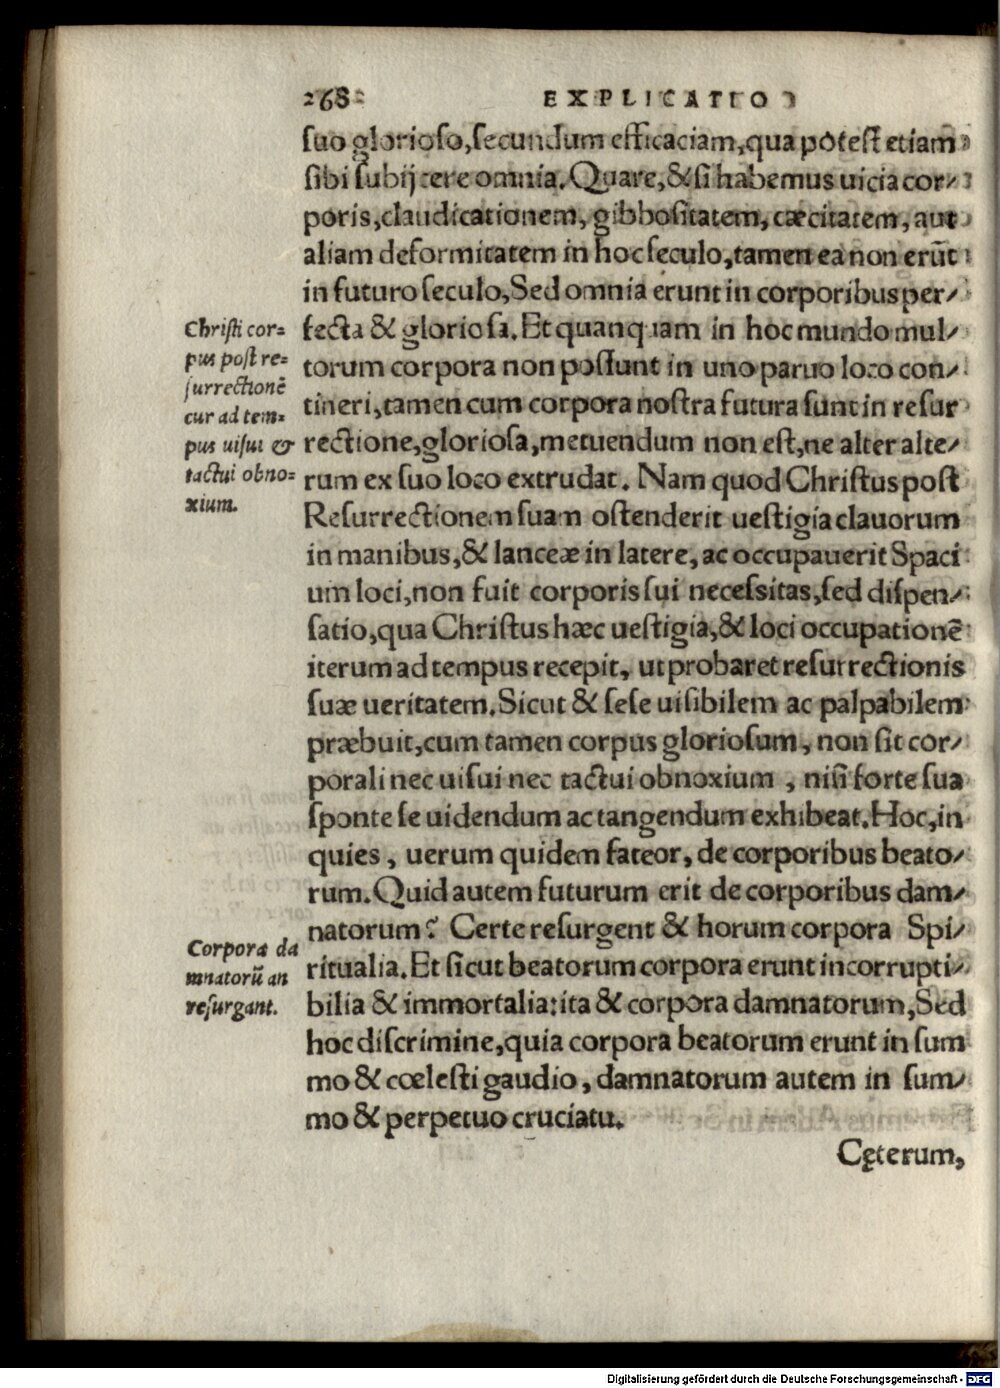 268 EXPLICATIO
suo glorioso, secundum efficaciam, qua potest etiam
sibi subijcere omnia. Quare, & si habemus uicia cor⸗
poris, claudicationem, gibbositatem, cæcitatem, aut
aliam deformitatem in hoc seculo, tamen ea non erūt
in futuro seculo, Sed omnia erunt in corporibus per⸗
fecta & gloriosa. Et quanquam in hoc mundo mul⸗
torum corpora non possunt in uno paruo loco con⸗
tineri, tamen cum corpora nostra futura sunt in resur
rectione, gloriosa, metuendum non est, ne alter alte⸗
rum ex suo loco extrudat. Nam quod Christus post
Resurrectionem suam ostenderit uestigia clauorum
in manibus, & lanceæ in latere, ac occupauerit Spaci
um loci, non fuit corporis sui necessitas, sed dispen⸗
satio, qua Christus hæc uestigia, & loci occupationē
iterum ad tempus recepit, ut probaret resurrectionis
suæ ueritatem. Sicut & sese uisibilem ac palpabilem
præbuit, cum tamen corpus gloriosum, non sit cor⸗
porali nec uisui nec tactui obnoxium, nisi forte sua
sponte se uidendum ac tangendum exhibeat. Hoc, in
quies, uerum quidem fateor, de corporibus beato⸗
rum. Quid autem futurum erit de corporibus dam⸗
natorum? Certe resurgent & horum corpora Spi⸗
ritualia. Et sicut beatorum corpora erunt incorrupti⸗
bilia & immortalia: ita & corpora damnatorum, Sed
hoc discrimine, quia corpora beatorum erunt in sum
mo & cœlesti gaudio, damnatorum autem in sum⸗
mo & perpetuo cruciatu.
Cęterum,
Christi cor⸗
pus post re⸗
surrectionē
cur ad tem⸗
pus uisui &
tactui obno⸗
xium.
Corpora da
mnatorū an
resurgant.
Digitalisierung gefördert durch die Deutsche Forschungsgemeinschaft - DFG